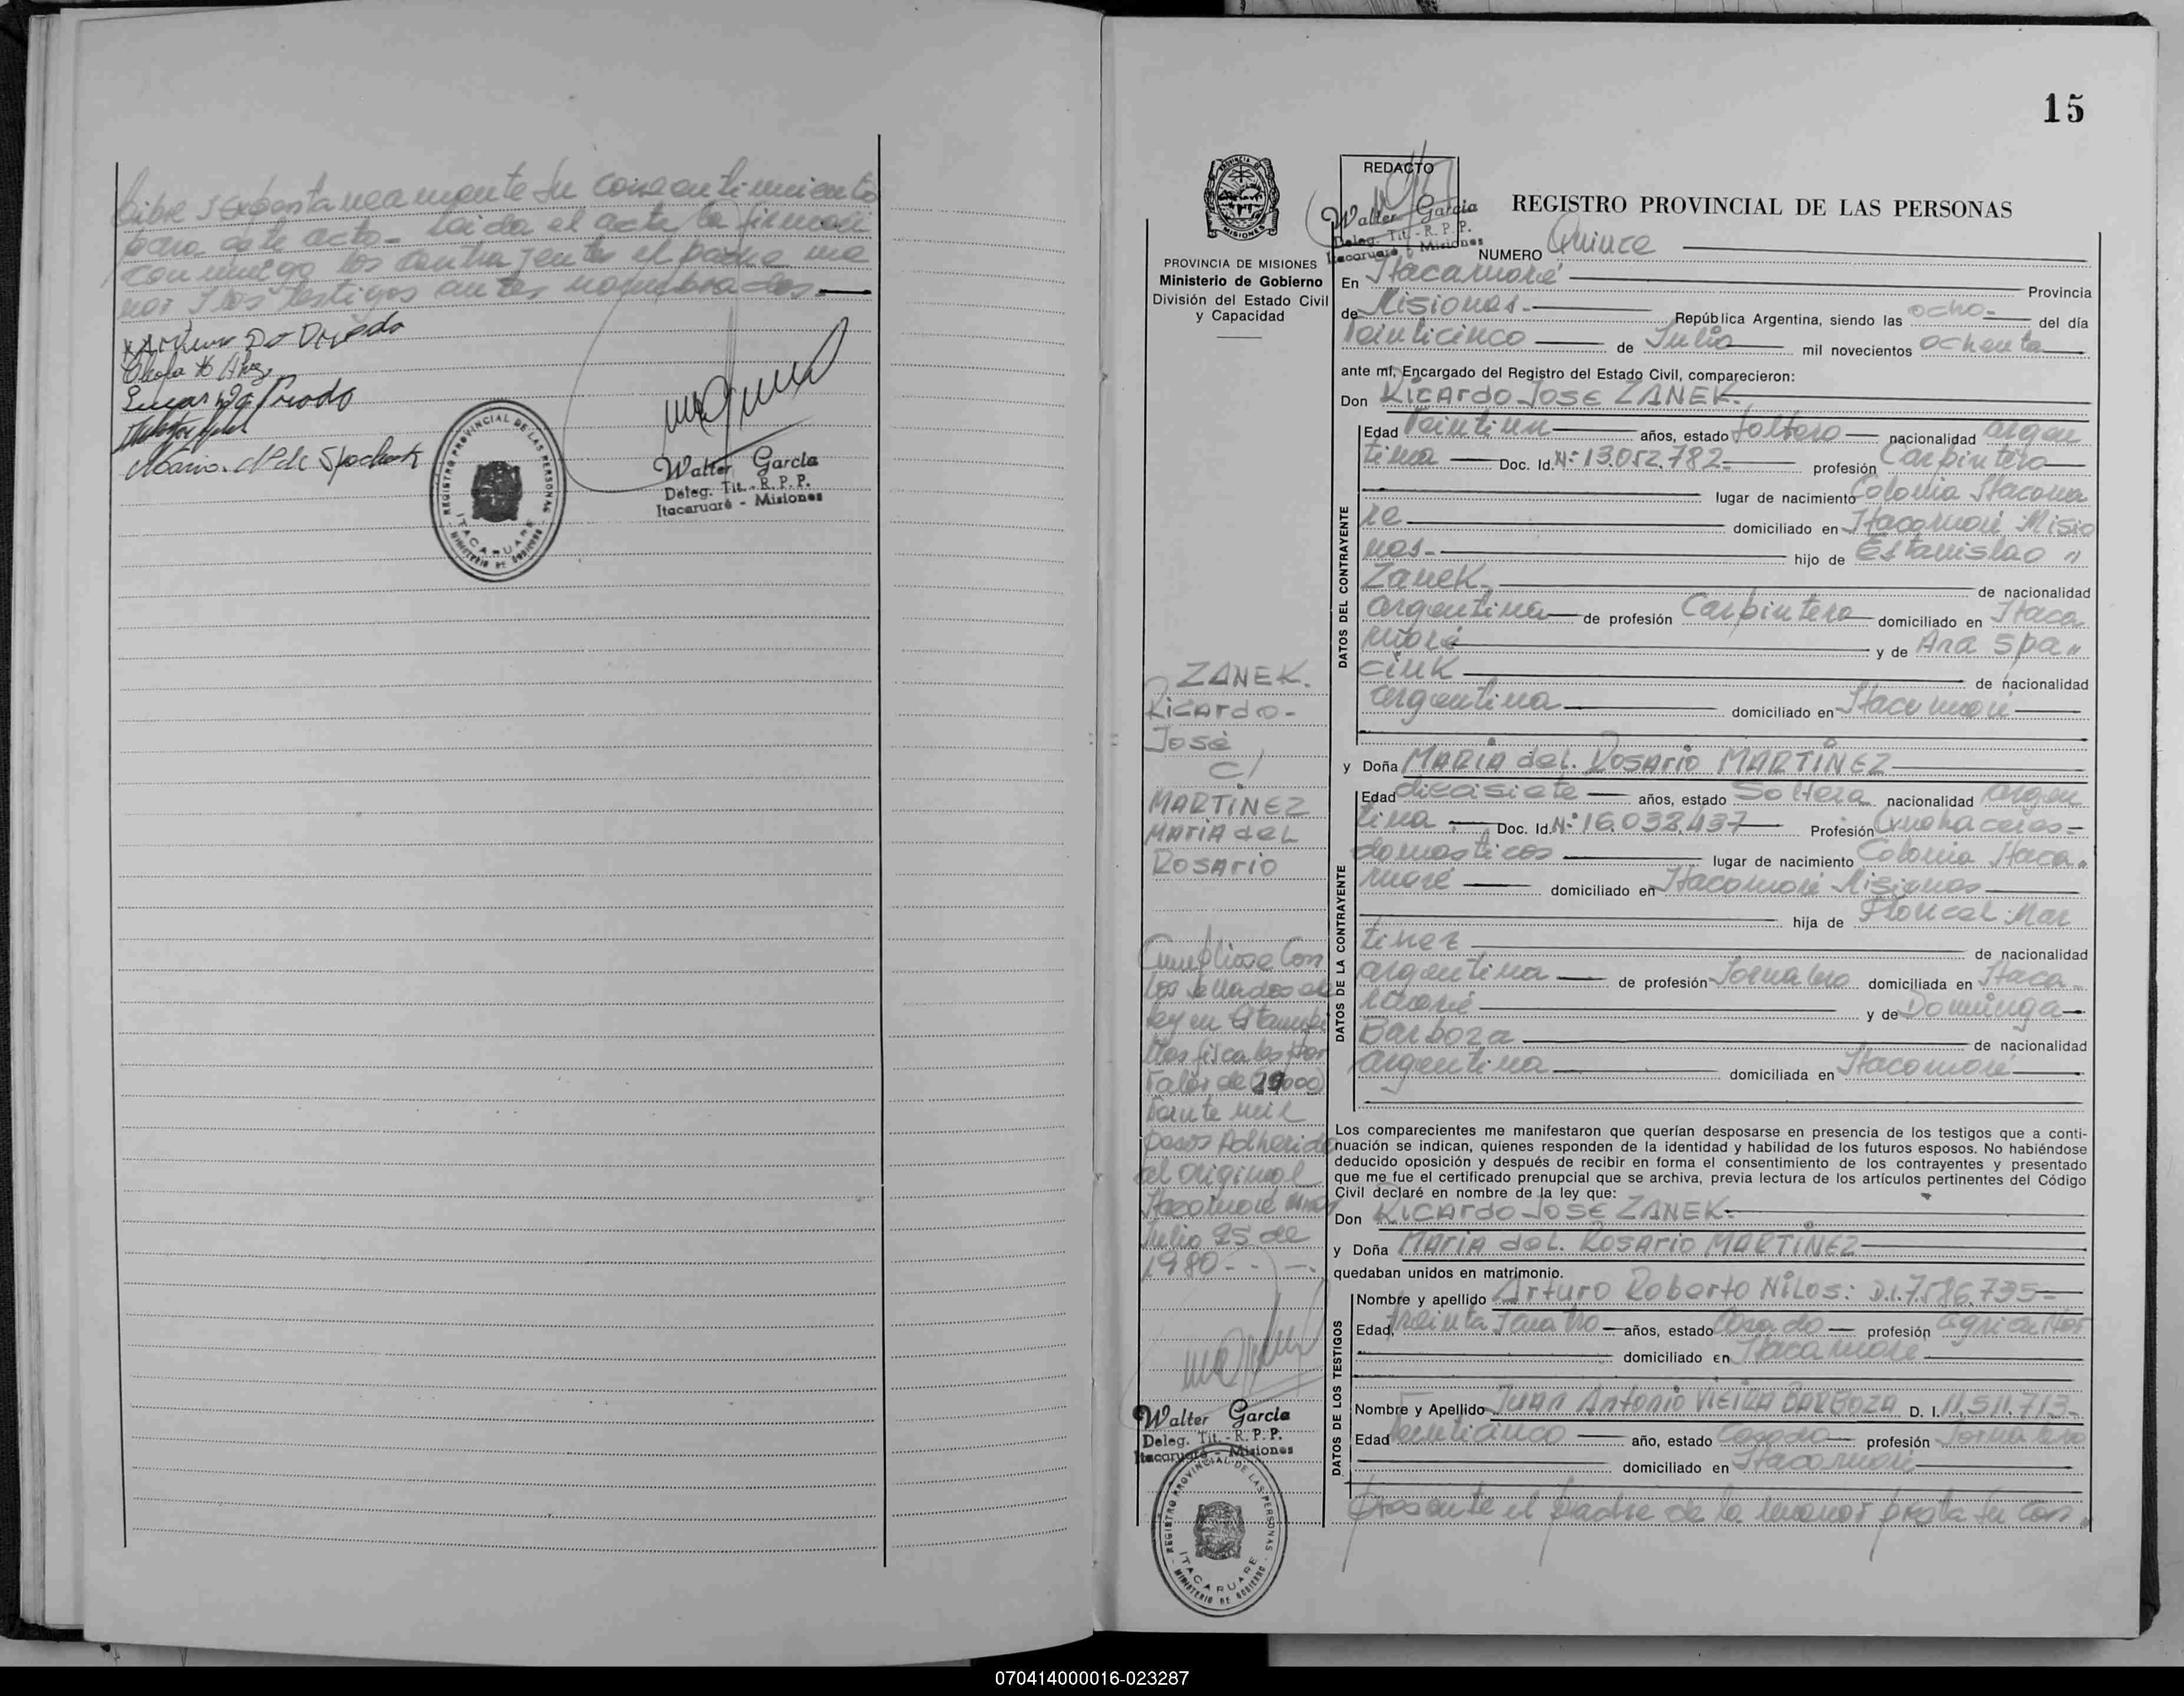 libre y expontaneamente su consentimiento
para este acto - Leida el acta la firman
conmigo los contrayentes el padre me
nor y los testigos antes nombrados.
Lucas Da Prado
REGISTRO PROVINCIAL DE LAS PERSONAS
ITACARUARE
MINISTERIO DE GOBIERNO
Walter Garcia
Deleg. Tit. - R. P. P.
Itacaruaré - Misiones
15
MISIONES
PROVINCIA DE MISIONES
Ministerio de Gobierno
División del Estado Civil
y Capacidad
REDACTO
Walter Garcia
Deleg. Tit. - R. P. P.
Itacaruaré - Misiones
REGISTRO PROVINCIAL DE LAS PERSONAS
NUMERO Quince
En Itacaruaré Provincia
de Misiones.- República Argentina, siendo las ocho- del día
Veinticinco de Julio mil novecientos ochenta
ante mí, Encargado del Registro del Estado Civil, comparecieron:
Don RICARDO JOSE ZANEK.
DATOS DEL CONTRAYENTE
Edad Veintiun años, estado Soltero nacionalidad argen
tina Doc. Id. Nº 13.052.782- profesión Carpintero
lugar de nacimiento Colonia Itacarua
re domiciliado en Itacaruaré Misio
nes.- hijo de Estanislao "
Zanek- de nacionalidad
argentina de profesión Carpintero domiciliado en Itaca
ruaré y de Ana Spa"
ciuk de nacionalidad
argentina domiciliado en Itacaruaré
y Doña MARIA del ROSARIO MARTINEZ
DATOS DE LA CONTRAYENTE
Edad diecisiete años, estado Soltera nacionalidad argen
tina Doc. Id. Nº 16.038.437 Profesión Quehaceres-
domesticos lugar de nacimiento Colonia Itaca"
ruaré domiciliado en Itacaruaré Misiones
hija de Florical Mar
tinez de nacionalidad
argentina de profesión Jornalero domiciliada en Itaca-
ruaré y de Dominga
Barboza de nacionalidad
argentina domiciliada en Itacaruaré
Los comparecientes me manifestaron que querían desposarse en presencia de los testigos que a conti-
nuación se indican, quienes responden de la identidad y habilidad de los futuros esposos. No habiéndose
deducido oposición y después de recibir en forma el consentimiento de los contrayentes y presentado
que me fue el certificado prenupcial que se archiva, previa lectura de los artículos pertinentes del Código
Civil declaré en nombre de la ley que:
Don RICARDO JOSE ZANEK-
y Doña MARIA del ROSARIO MARTINEZ
quedaban unidos en matrimonio.
DATOS DE LOS TESTIGOS
Nombre y apellido Arturo Roberto Nilos: D.I. 7.586.735-
Edad, treinta y cuatro años, estado Casado profesión agricultor
domiciliado en Itacaruaré
Nombre y Apellido Juan Antonio VIEIRA BARBOZA D. I. 11.511.713-
Edad Veinticinco año, estado Casado profesión Jornalero
domiciliado en Itacaruaré
Presente el padre de la menor presta su con
ZANEK.
Ricardo-
José
c/
MARTINEZ
MARIA del
ROSARIO
Cumpliose Con
los sellados de
ley en Estampi
llas fiscales por
valor de
Veinte mil
pesos Adherido
al original
Itacaruaré
Julio 25 de
1980- - -.
Walter Garcia
Deleg. Tit. - R. P. P.
Itacaruaré - Misiones
REGISTRO PROVINCIAL DE LAS PERSONAS
ITACARUARE
MINISTERIO DE GOBIERNO
070414000016-023287